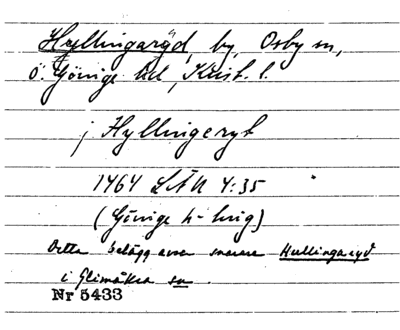 Hyllingaryd, by, Osby sn,
Ö. Göinge hd, Krist. l.
i Hyllingeryt
1464 LÄU 4:35
(Göinge h-brig)
Detta belägg avser snarare Hullingaryd
i Glimåkra sn.
Nr 5433